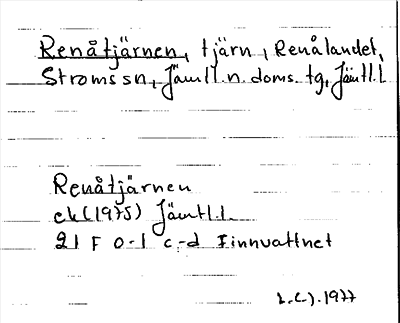 Renåtjärnen, tjärn, Renålandet,
Ströms sn, Jämtl. n. doms. tg, Jämtl. l.
Renåtjärnen
ek (1975) Jämtl. l.
21 F 0-1 c-d Finnvattnet
1977